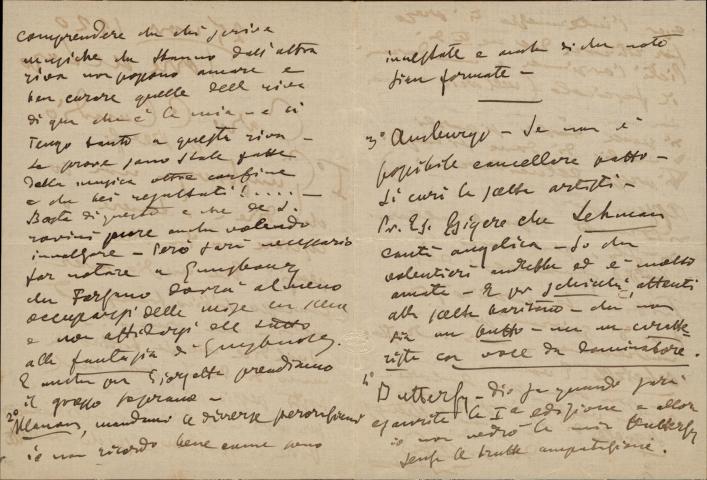 comprendere che chi scrive
musiche che stanno dall'altra
riva non possono amare e
ben curare quelle dell riva
di qua che è la mia - e ci
tengo tanto a questa riva -
Le prove sono state fatte
della musica oltre confine
e che bei resultati! .... -
Basta di questo e che de S.
rovini pure anche volendo
involgere - Però sarà necessario
far notare a
che Forzano dovrà almeno
occuparsi delle mise en scene
e non affidarsi all tutto
alla fantasia di
E anche per Giorgetta prendiamo
il grosso soprano -
2º Manon, mandami le diverse
io non ricordo bene come sono
innestate e anche di che note
sien formate -
3º Amburgo - Se non è
possibile cancellare patto -
si curi la scelta artisti -
P. Es. Esigere che Lehman
canti angelica - So che
volentieri andrebbe ed è molto
amata - E per Schicchi, attenti
alla scelta baritono - che non
sia un buffo - ma un caratte-
rista con voce da dominatore.
4º Butterfly - dio sa quando sarà
esaurita la Iª edizione e allora
io non vedrò la mia Butterfly
senza le brutte amputazioni.